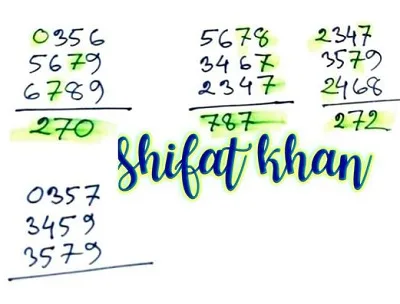 0356
5679
6789
270
5678
3467
2347
787
2347
3579
2468
272
Shifat khan
0357
3459
3579